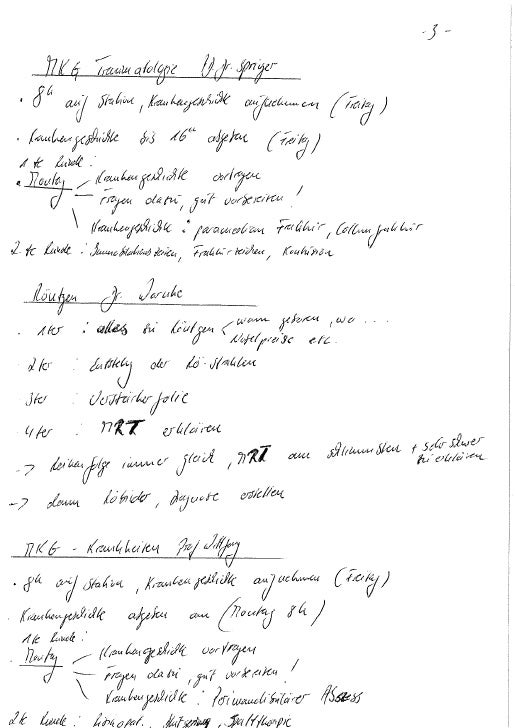 - 3 -
MKG Traumatologie Dr. Springer
• 8h auf Station, Krankengeschichte aufnehmen (Freitag)
• Krankengeschichte bis 16h abgeben (Freitag)
1te Runde :
• Montag - Krankengeschichte vortragen
- Fragen dazu, gut vorbereiten !
\ Krankengeschichte : paramediane Fraktur, Collumfraktur
2.te Runde : Frakturzeichen, Kontusion
Röntgen Dr. Warnke
• 1ter : alles zu Röntgen < wann geboren, wo ...
Nobelpreise etc.
2ter : Entstehg der Rö-Strahlen
3ter : Verstärkerfolie
4ter : MRT erklären
-> Reihenfolge immer gleich, MRT am schlimmsten + sehr schwer
zu erklären
-> dann Röbilder, Diagnose erstellen
MKG - Krankheiten Prof Wiltfang
• 8h auf Station, Krankengeschichte aufnehmen (Freitag)
• Krankengeschichte abgeben am (Montag 8h)
1te Runde :
• Montag - Krankengeschichte vortragen
- Fragen dazu, gut vorbereiten !
\ Krankengeschichte : Perimandibulärer Abszess
2te Runde :